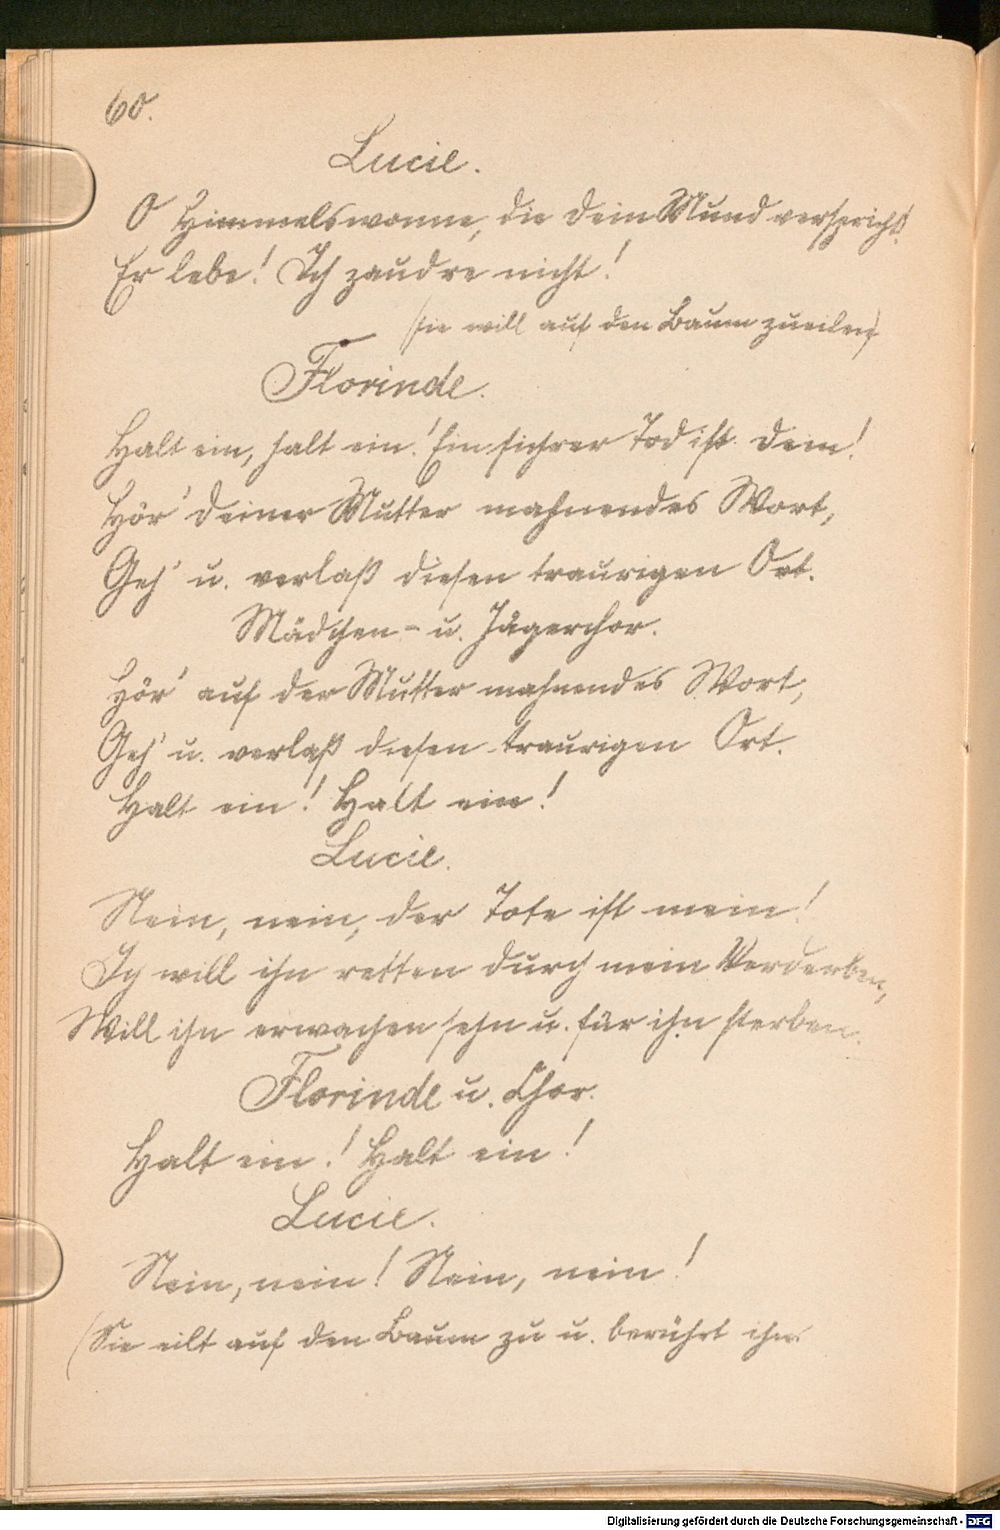 60.
Lucie.
O Himmelswonne, die dein Mund verspricht!
Er lebe! Ich zaudre nicht!
(sie will auf den Baum zueilen)
Florinde.
Halt ein, halt ein! Ein sichrer Tod ist dein!
Hör' deiner Mutter mahnendes Wort,
Geh' u. verlaß diesen traurigen Ort.
Mädchen- u. Jägerchor.
Hör' auf der Mutter mahnendes Wort,
Geh' u. verlaß diesen traurigen Ort.
Halt ein! Halt ein!
Lucie.
Nein, nein, der Tote ist mein!
Ich will ihn retten durch mein Verderben,
Will ihn erwachen sehn u. für ihn sterben.
Florinde u. Chor.
Halt ein! Halt ein!
Lucie.
Nein, nein! Nein, nein!
(Sie eilt auf den Baum zu u. berührt ihn
Digitalisierung gefördert durch die Deutsche Forschungsgemeinschaft - DFG